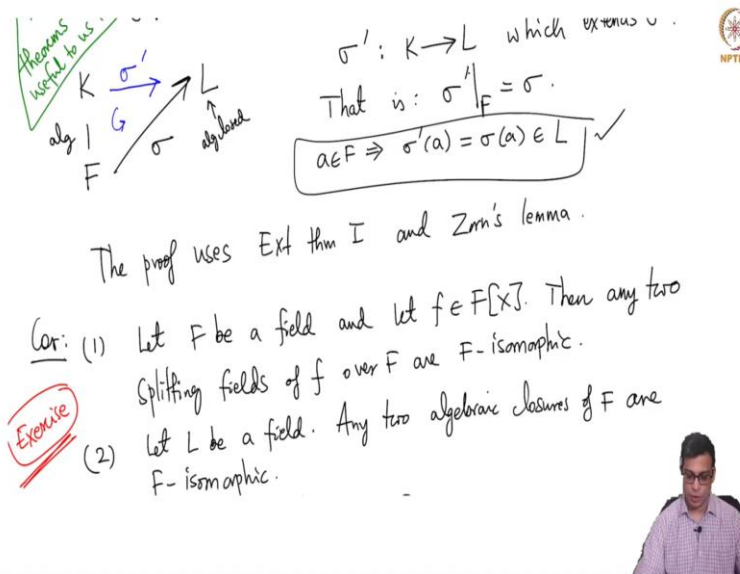 theorems
useful to us!
σ' : K → L which extends σ.
That is : σ'|_F = σ.
K σ' L
alg G σ alg closed
F
a∈F ⇒ σ'(a) = σ(a) ∈ L ✓
The proof uses Ext thm I and Zorn's lemma.
Cor: (1) Let F be a field and let f ∈ F[X]. Then any two
splitting fields of f over F are F-isomorphic.
Exercise
(2) Let L be a field. Any two algebraic closures of F are
F-isomorphic.
NPTE